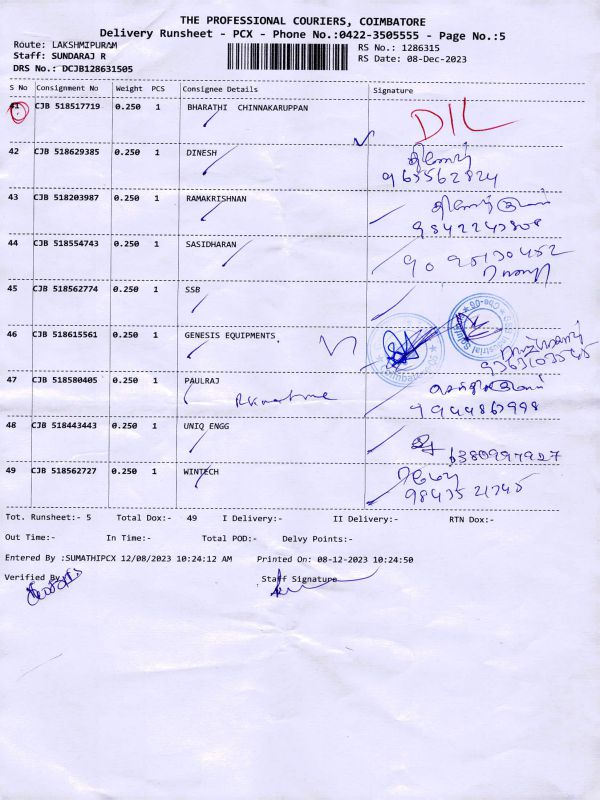 THE PROFESSIONAL COURIERS, COIMBATORE
Delivery Runsheet - PCX - Phone No.:0422-3505555 - Page No.:5
Route: LAKSHMIPURAM
RS No.: 1286315
Staff: SUNDARAJ R
RS Date: 08-Dec-2023
DRS No.: DCJB128631505
S No Consignment No Weight PCS Consignee Details Signature
41 CJB 518517719 0.250 1 BHARATHI CHINNAKARUPPAN
DIL
42 CJB 518629385 0.250 1 DINESH
43 CJB 518203987 0.250 1 RAMAKRISHNAN
9842243808
44 CJB 518554743 0.250 1 SASIDHARAN
90 95130452
45 CJB 518562774 0.250 1 SSB
46 CJB 518615561 0.250 1 GENESIS EQUIPMENTS
9363103545
47 CJB 518580405 0.250 1 PAULRAJ
9944867998
48 CJB 518443443 0.250 1 UNIQ ENGG
6380997927
49 CJB 518562727 0.250 1 WINTECH
9843521345
Tot. Runsheet:- 5 Total Dox:- 49 I Delivery:- II Delivery:- RTN Dox:-
Out Time:- In Time:- Total POD:- Delvy Points:-
Entered By :SUMATHIPCX 12/08/2023 10:24:12 AM Printed On: 08-12-2023 10:24:50
Verified By
Staff Signature